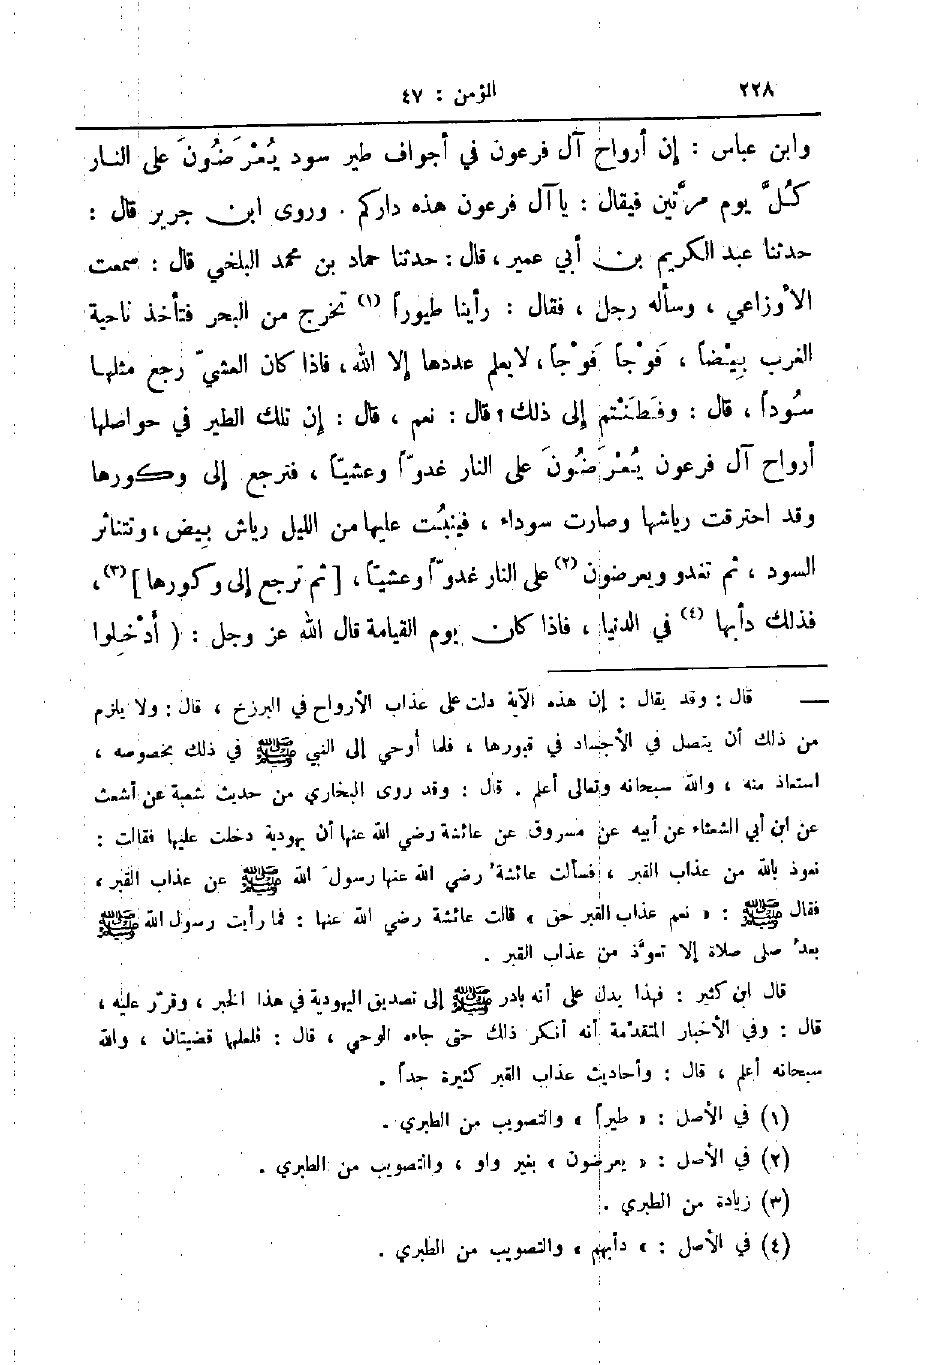 ٢٢٨ المؤمن : ٤٧
وابن عباس : إن أرواح آل فرعون في أجواف طير سود يُعْرَضُونَ على النار
كُلَّ يوم مرَّتين فيقال : يا آل فرعون هذه داركم . وروى ابن جرير قال :
حدثنا عبد الكريم بن أبي عمير ، قال : حدثنا حماد بن محمد البلخي قال : سمعت
الأوزاعي ، وسأله رجل ، فقال : رأينا طيوراً (١) تخرج من البحر فتأخذ ناحية
الغرب بِيْضاً ، فَوْجاً فَوْجاً ، لا يعلم عددها إلا الله ، فاذا كان العشيّ رجع مثلها
سُوداً ، قال : وفَطَنْتم إلى ذلك ؟ قال : نعم ، قال : إن تلك الطير في حواصلها
أرواح آل فرعون يُعْرَضُونَ على النار غدوّاً وعشيّاً ، فترجع إلى وكورها
وقد احترقت رياشها وصارت سوداء ، فينبُت عليها من الليل رياش بِيض ، وتتناثر
السود ، ثم تغدو ويعرضون (٢) على النار غدوّاً وعشيّاً ، [ ثم ترجع إلى وكورها ] (٣) ،
فذلك دأبها (٤) في الدنيا ، فاذا كان يوم القيامة قال الله عز وجل : ( أَدْخِلوا
ـــ قال : وقد يقال : إن هذه الآية دلت على عذاب الأرواح في البرزخ ، قال : ولا يلزم
من ذلك أن يتصل في الأجساد في قبورها ، فلما أوحي إلى النبي ﷺ في ذلك بخصوصه ،
استعاذ منه ، والله سبحانه وتعالى أعلم . قال : وقد روى البخاري من حديث شعبة عن أشعث
عن ابن أبي الشعثاء عن أبيه عن مسروق عن عائشة رضي الله عنها أن يهودية دخلت عليها فقالت :
نعوذ بالله من عذاب القبر ، فسألت عائشةُ رضي الله عنها رسولَ الله ﷺ عن عذاب القبر ،
فقال ﷺ : « نعم عذاب القبر حق » قالت عائشة رضي الله عنها : فما رأيت رسول الله ﷺ
بعدُ صلى صلاة إلا تعوَّذ من عذاب القبر .
قال ابن كثير : فهذا يدل على أنه بادر ﷺ إلى تصديق اليهودية في هذا الخبر ، وقرّر عليه ،
قال : وفي الأخبار المتقدّمة أنه أنكر ذلك حتى جاءه الوحي ، قال : فلعلها قضيتان ، والله
سبحانه أعلم ، قال : وأحاديث عذاب القبر كثيرة جداً .
(١) في الأصل : « طيراً » والتصويب من الطبري .
(٢) في الأصل : « يعرضون » بغير واو ، والتصويب من الطبري .
(٣) زيادة من الطبري .
(٤) في الأصل : « دأبهم » والتصويب من الطبري .